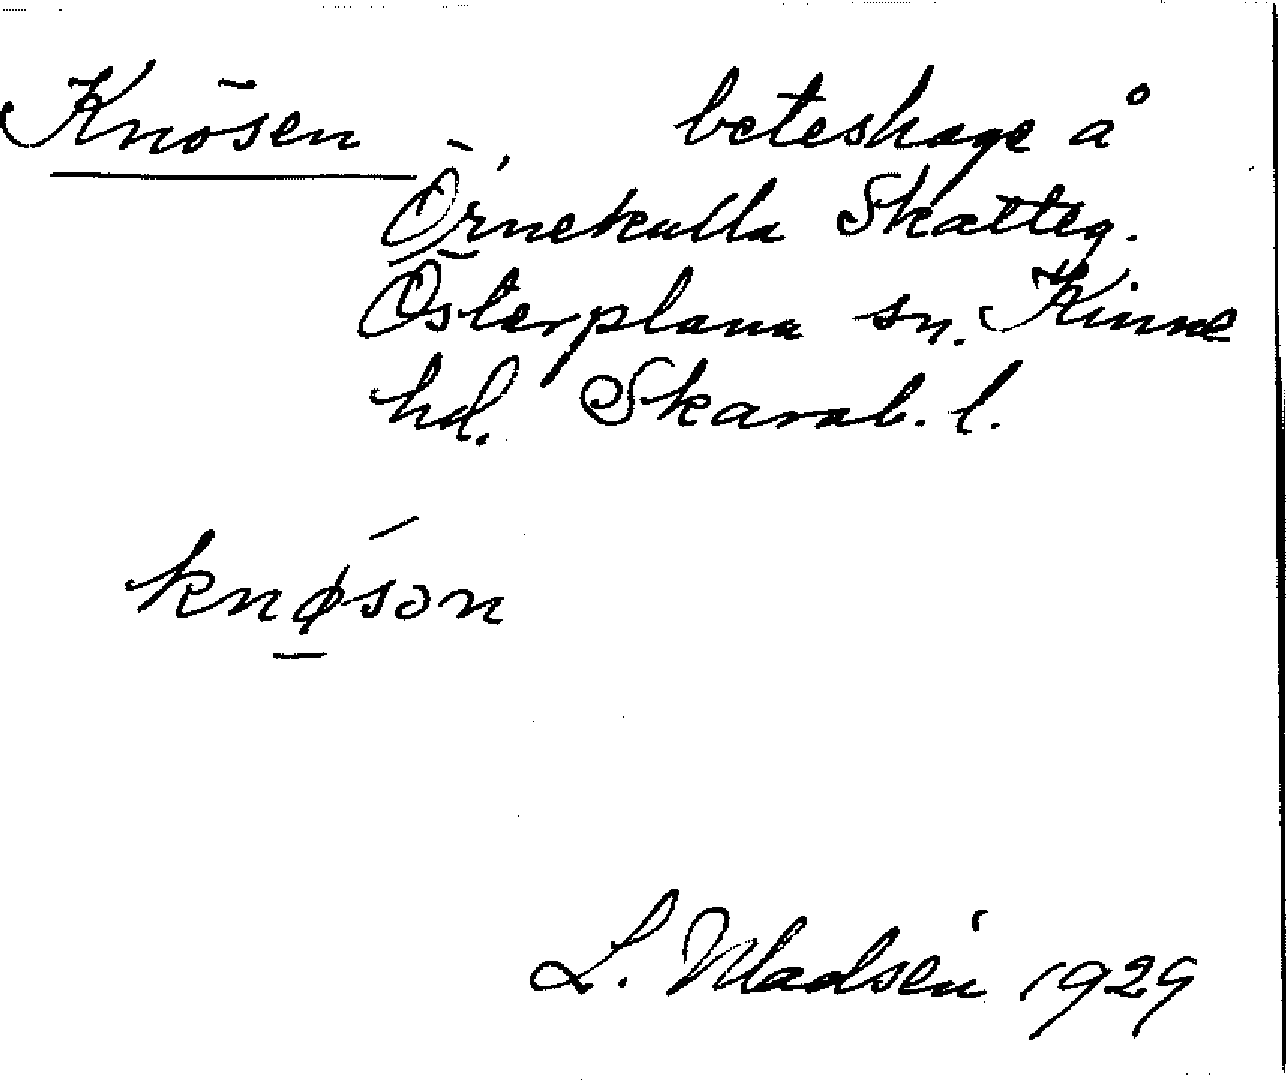 Knösen beteshage å
Örnekulla Skatteg.
Österplana sn. Kinne
hd. Skarab. l.
knøsən
L. Madsén 1929